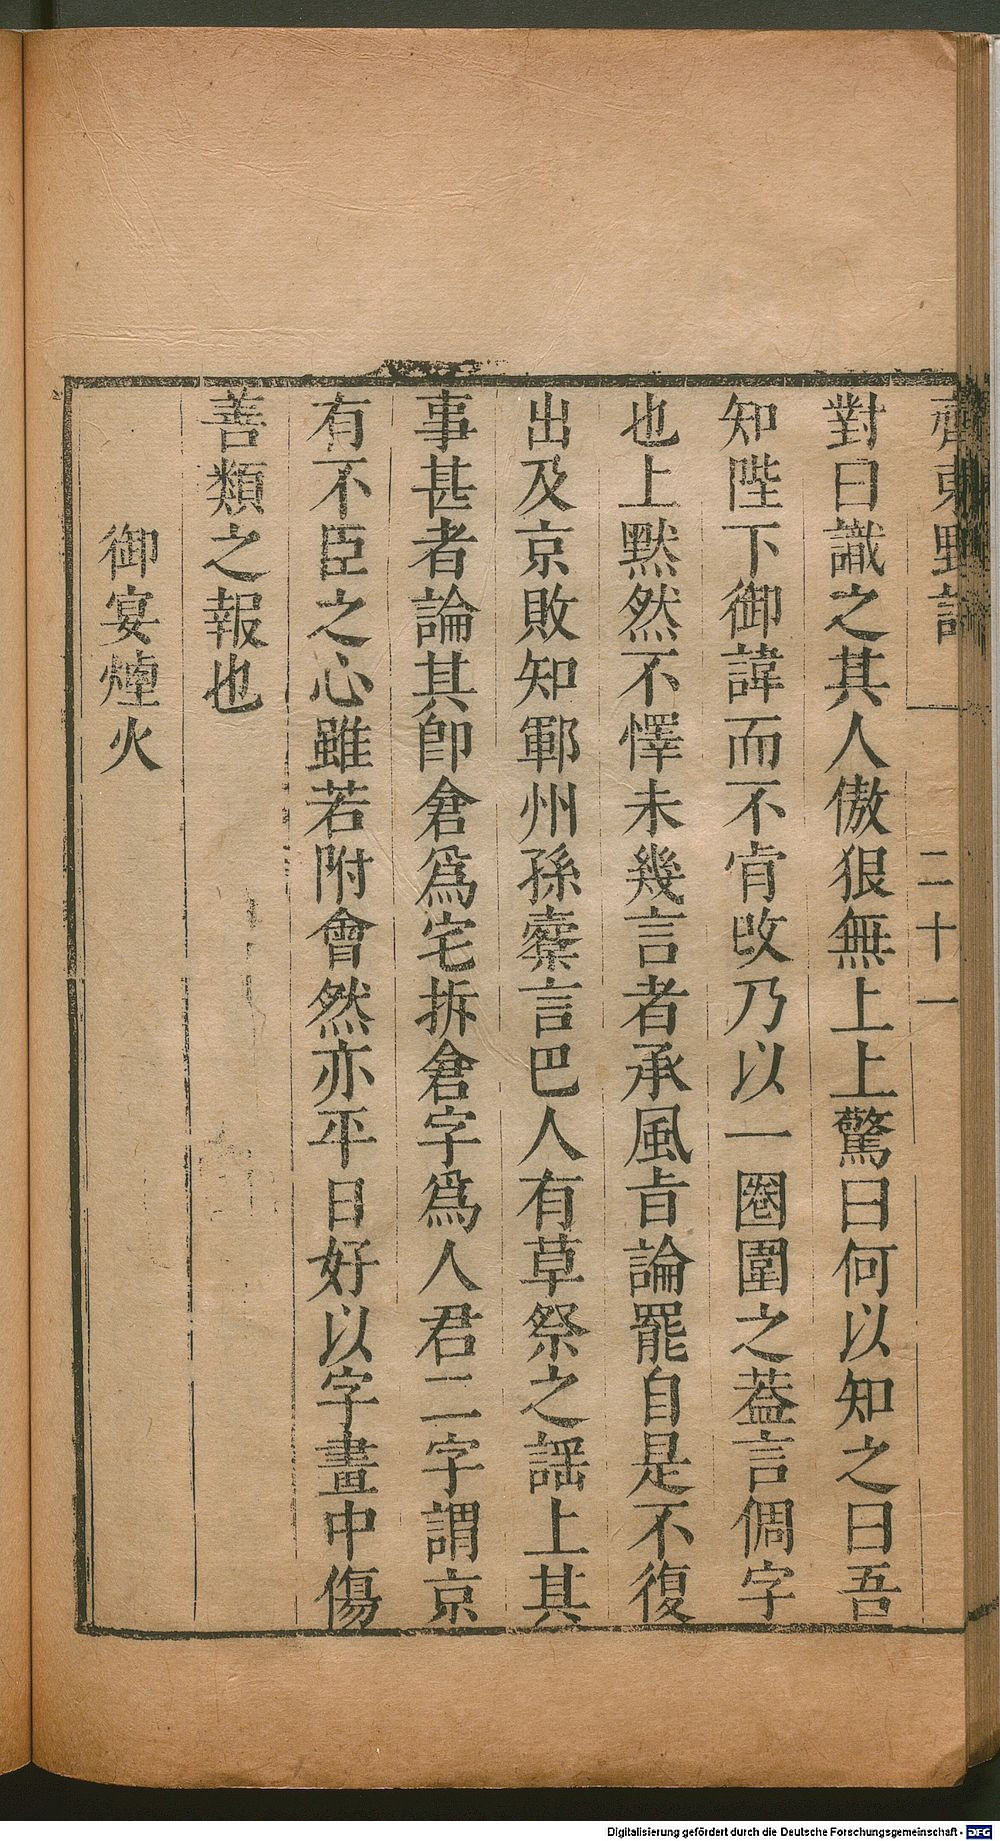 齊東野語
二十一
對曰識之其人傲狠無上上驚曰何以知之曰吾
知陛下御諱而不肯改乃以一圈圍之葢言倜字
也上黙然不懌未幾言者承風旨論罷自是不復
出及京敗知鄆州孫槖言巴人有草祭之謡上其
事甚者論其卽倉爲宅拆倉字爲人君二字謂京
有不臣之心雖若附會然亦平日好以字畫中傷
善類之報也
御宴煙火
Digitalisierung gefördert durch die Deutsche Forschungsgemeinschaft - DFG